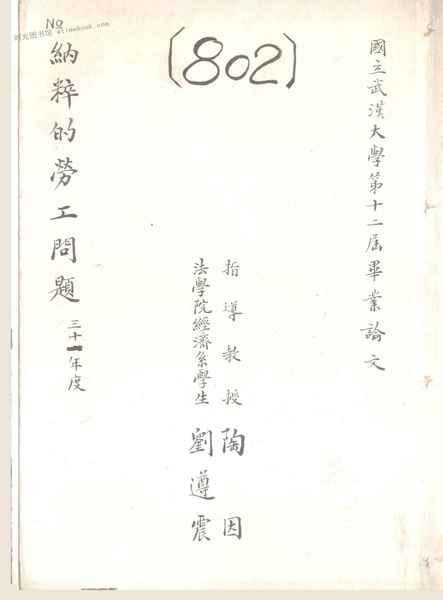 國立武漢大學第十二屆畢業論文
(802)
指導教授 陶因
法學院經濟系學生 劉遵震
納粹的勞工問題
三十一年度
No
时光图书馆 atimebook.com